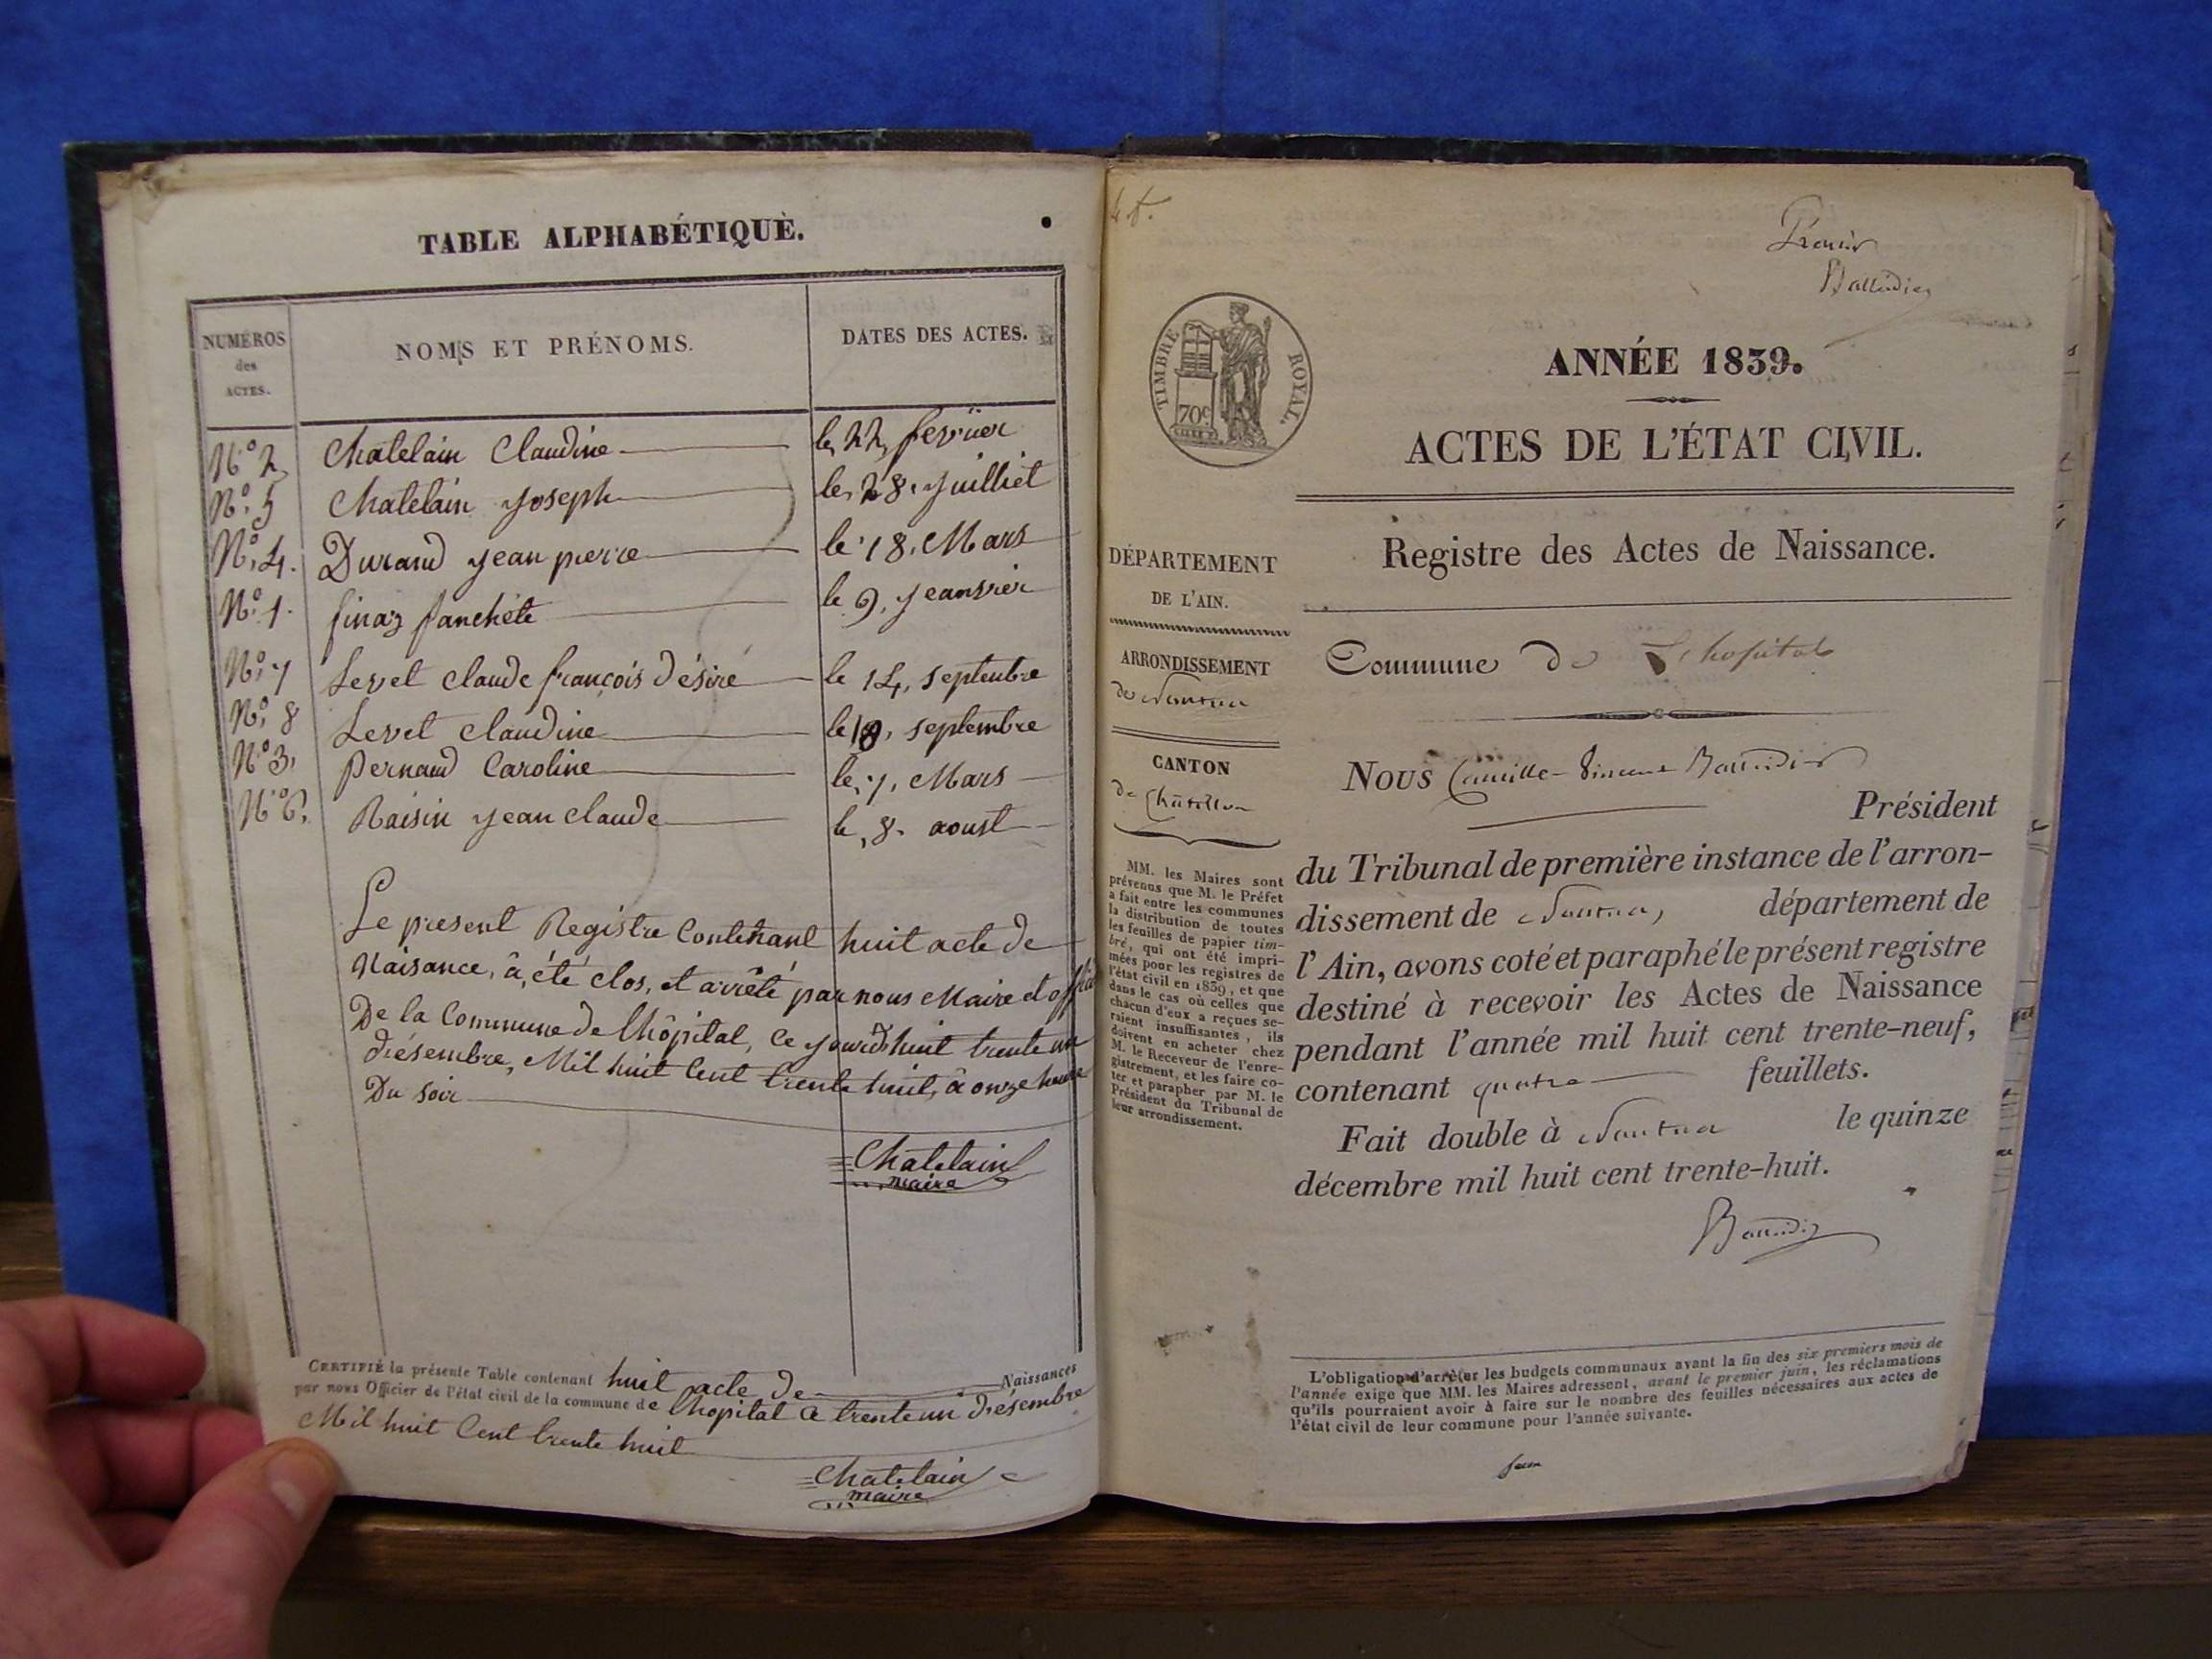 TABLE ALPHABÉTIQUE.
NUMÉROS
des
ACTES.
NOMS ET PRÉNOMS.
DATES DES ACTES.
N° 2 Chatelain Claudine le 22 fevrier
N° 5 Chatelain Joseph le 28 Juilliet
N° 4. Durand Jean pierre le 18. Mars
N° 1. finaz fanchete le 9, Jeanvier
N° 7 Levet claude françois désiré le 14, septenbre
N° 8 Levet claudine le 18, septembre
N° 3, Pernaud Caroline le, 7, Mars
N° 6. Raisin Jean claude le, 8. aoust
Le present Registre Contenant huit acte de
Naisance, â, été clos, et arrêté par nous Maire et
De la Commune de lhôpital, Ce Jourdhuit trente un
désembre, Mil huit Cent trente huit, â onze heure
Du soir
Chatelain
maire
CERTIFIÉ la présente Table contenant huit acte De Naissances
par nous Officier de l'état civil de la commune de lhopital ce trente un désembre
Mil huit Cent trente huit
Chatelain
maire
4 f.
Premier
TIMBRE ROYAL.
70c
ANNÉE 1839.
ACTES DE L'ÉTAT CIVIL.
Registre des Actes de Naissance.
DÉPARTEMENT
DE L'AIN.
ARRONDISSEMENT
de Nantua
CANTON
de Châtillon
MM. les Maires sont
prévenus que M. le Préfet
a fait entre les communes
la distribution de toutes
les feuilles de papier tim-
bré, qui ont été impri-
mées pour les registres de
l'état civil en 1839, et que
dans le cas où celles que
chacun d'eux a reçues se-
raient insuffisantes, ils
doivent en acheter chez
M. le Receveur de l'enre-
gistrement, et les faire co-
ter et parapher par M. le
Président du Tribunal de
leur arrondissement.
Commune de Lhopital
Nous Camille-Vincent
Président
du Tribunal de première instance de l'arron-
dissement de Nantua, département de
l'Ain, avons coté et paraphé le présent registre
destiné à recevoir les Actes de Naissance
pendant l'année mil huit cent trente-neuf,
contenant quatre feuillets.
Fait double à Nantua le quinze
décembre mil huit cent trente-huit.
L'obligation d'arrêter les budgets communaux avant la fin des six premiers mois de
l'année exige que MM. les Maires adressent, avant le premier juin, les réclamations
qu'ils pourraient avoir à faire sur le nombre des feuilles nécessaires aux actes de
l'état civil de leur commune pour l'année suivante.